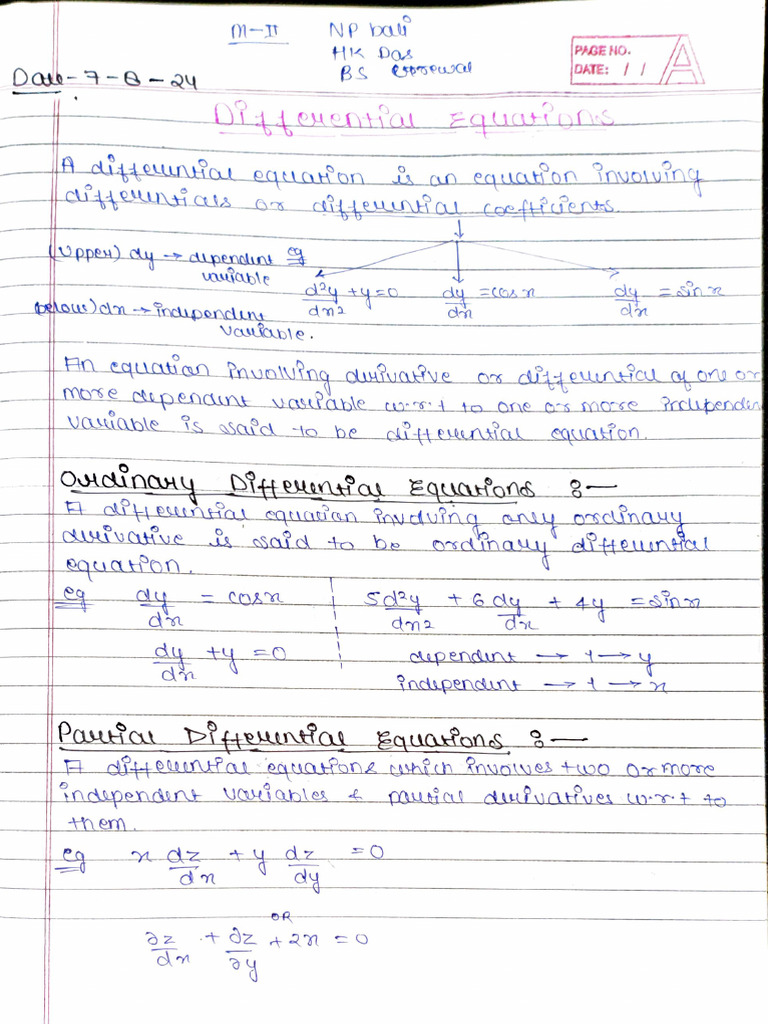 M-II
NP bali
HK Das
BS
PAGE NO.
DATE: / /
Date - 7 - 8 - 24
Differential Equations
A differential equation is an equation involving
differentials or differential coefficients.
(Upper) dy → dependent variable
eg
d²y/dx² + y = 0
dy/dx = cosx
dy/dx = sinx
below) dx → independent variable.
An equation involving derivative or differential of one or
more dependent variable w.r.t to one or more independen
variable is said to be differential equation.
Ordinary Differential Equations :-
A differential equation involving only ordinary
derivative is said to be ordinary differential
equation.
eg dy/dx = cosx
5d²y/dx² + 6dy/dx + 4y = sinx
dy/dx + y = 0
dependent → 1 → y
independent → 1 → x
Partial Differential Equations :-
A differential equations which involves two or more
independent variables & partial derivatives w.r.t to
them.
eg x dz/dx + y dz/dy = 0
OR
∂z/dx + ∂z/∂y + 2x = 0